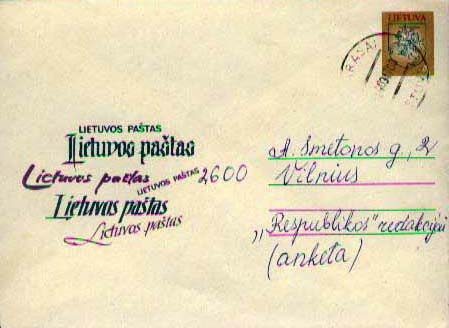 LIETUVA
LIETUVOS PAŠTAS
Lietuvos paštas
Lietuvos paštas
LIETUVOS PAŠTAS
2600
Lietuvos paštas
Lietuvos paštas
A. Smetonos g., 2
Vilnius
„Respublikos" redakcijai
(anketa)